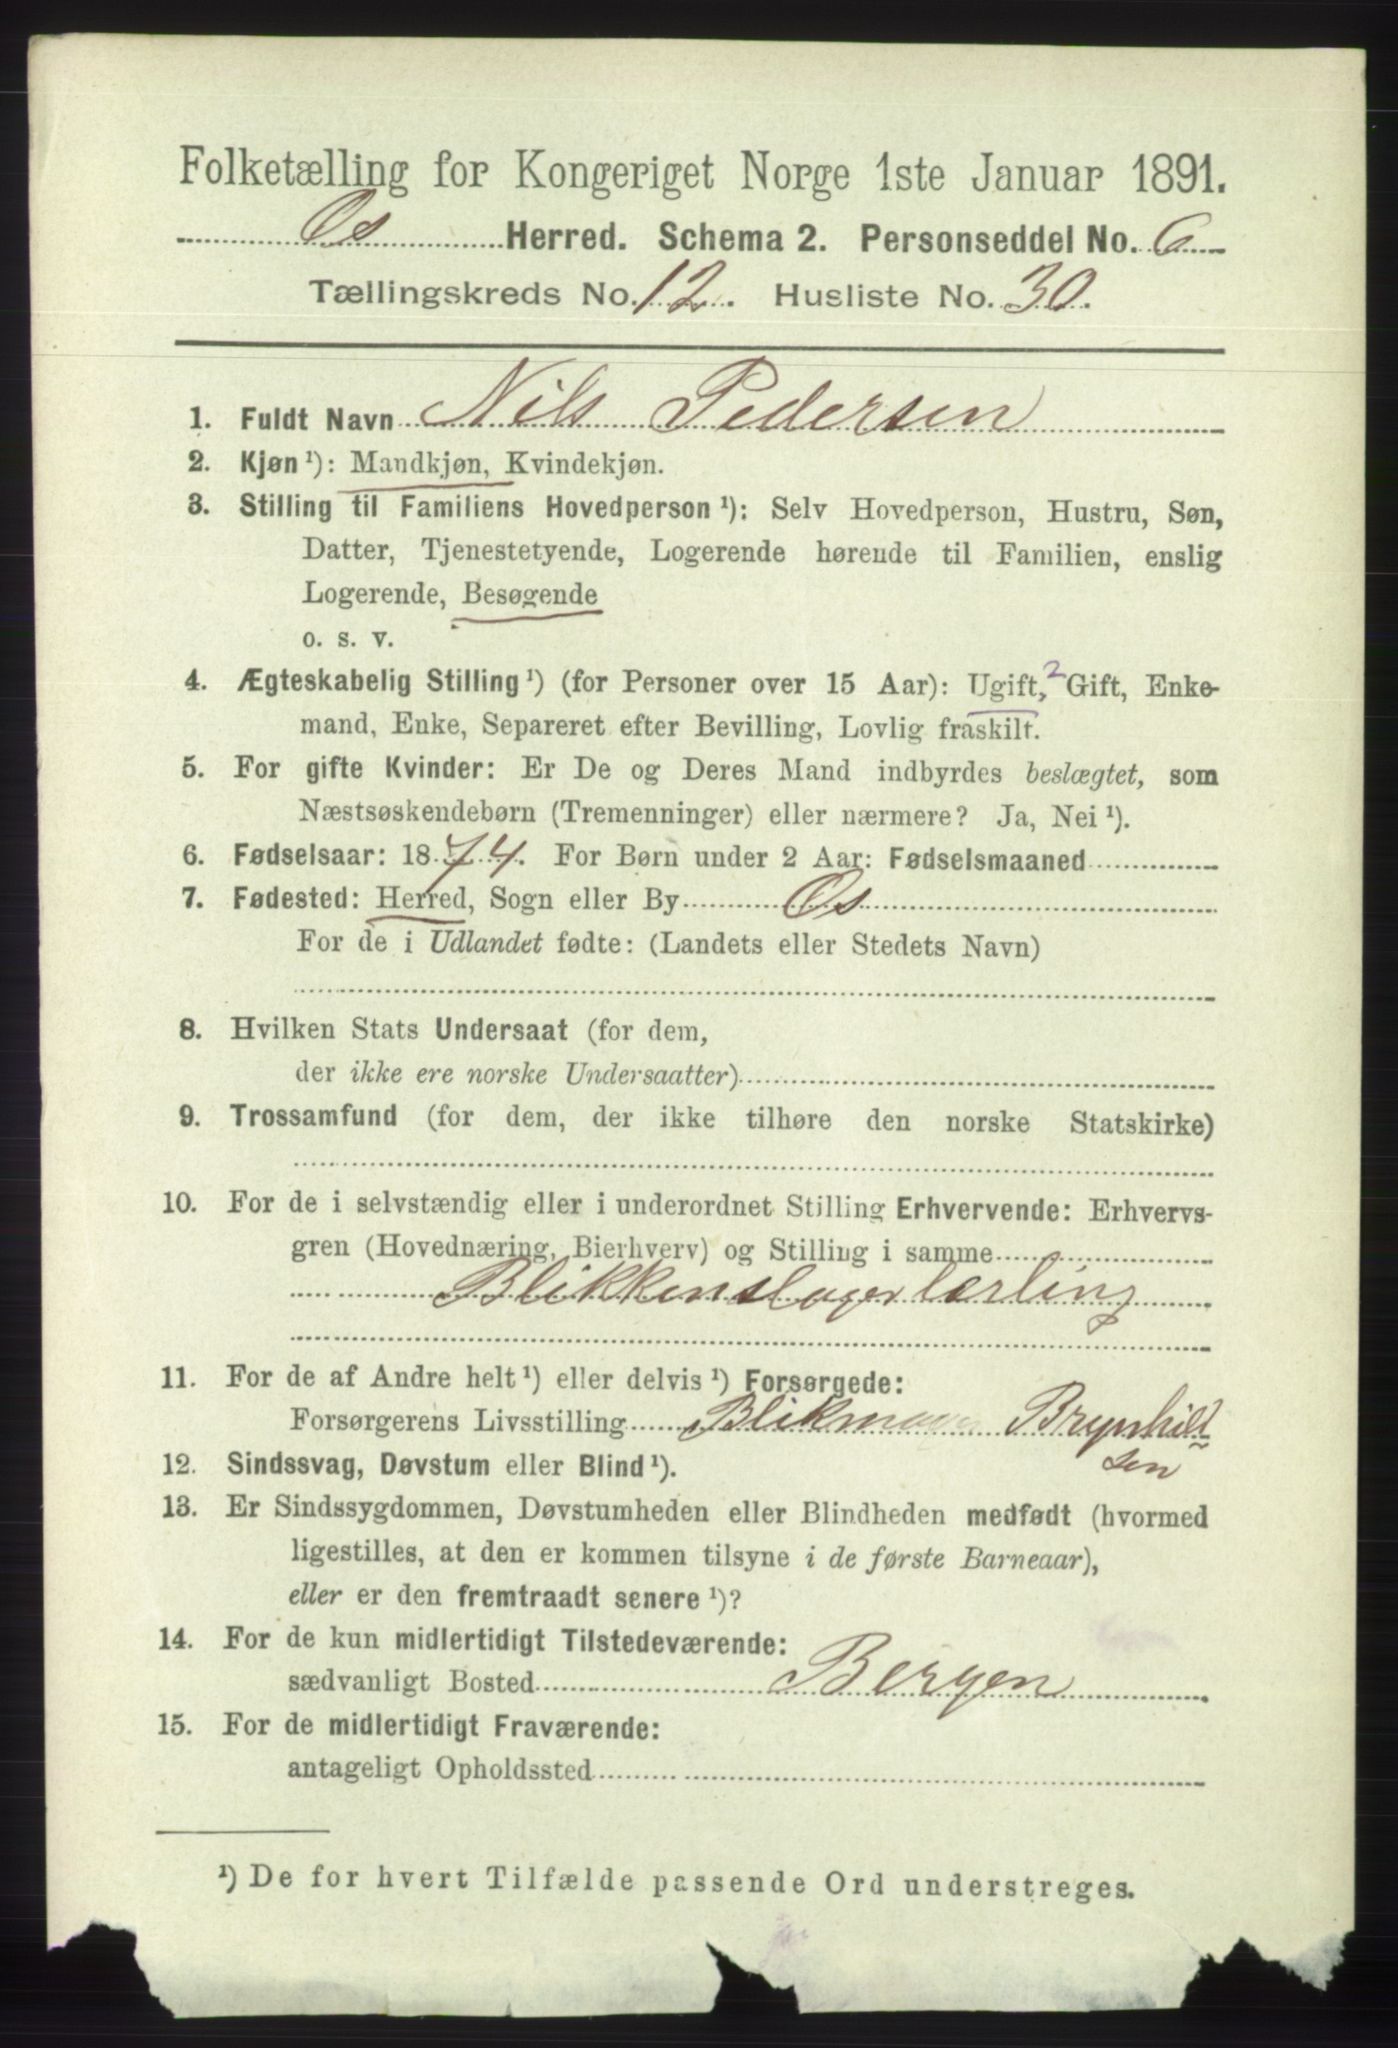 Folketælling for Kongeriget Norge 1ste Januar 1891.
Os Herred. Schema 2. Personseddel No. 6
Tællingskreds No. 12. Husliste No. 30.
1. Fuldt Navn Nils Pedersen
2. Kjøn ¹): Mandkjøn, Kvindekjøn.
3. Stilling til Familiens Hovedperson ¹): Selv Hovedperson, Hustru, Søn,
Datter, Tjenestetyende, Logerende hørende til Familien, enslig
Logerende, Besøgende
o. s. v.
4. Ægteskabelig Stilling ¹) (for Personer over 15 Aar): Ugift, 2 Gift, Enke-
mand, Enke, Separeret efter Bevilling, Lovlig fraskilt.
5. For gifte Kvinder: Er De og Deres Mand indbyrdes beslægtet, som
Næstsøskendebørn (Tremenninger) eller nærmere? Ja, Nei ¹).
6. Fødselsaar: 1874. For Børn under 2 Aar: Fødselsmaaned
7. Fødested: Herred, Sogn eller By Os
For de i Udlandet fødte: (Landets eller Stedets Navn)
8. Hvilken Stats Undersaat (for dem,
der ikke ere norske Undersaatter)
9. Trossamfund (for dem, der ikke tilhøre den norske Statskirke)
10. For de i selvstændig eller i underordnet Stilling Erhvervende: Erhvervs-
gren (Hovednæring, Bierhverv) og Stilling i samme
Blikkenslagerlærling
11. For de af Andre helt ¹) eller delvis ¹) Forsørgede:
Forsørgerens Livsstilling Blikmager Brynhild
sen
12. Sindssvag, Døvstum eller Blind ¹).
13. Er Sindssygdommen, Døvstumheden eller Blindheden medfødt (hvormed
ligestilles, at den er kommen tilsyne i de første Barneaar),
eller er den fremtraadt senere ¹)?
14. For de kun midlertidigt Tilstedeværende:
sædvanligt Bosted Bergen
15. For de midlertidigt Fraværende:
antageligt Opholdssted
¹) De for hvert Tilfælde passende Ord understreges.